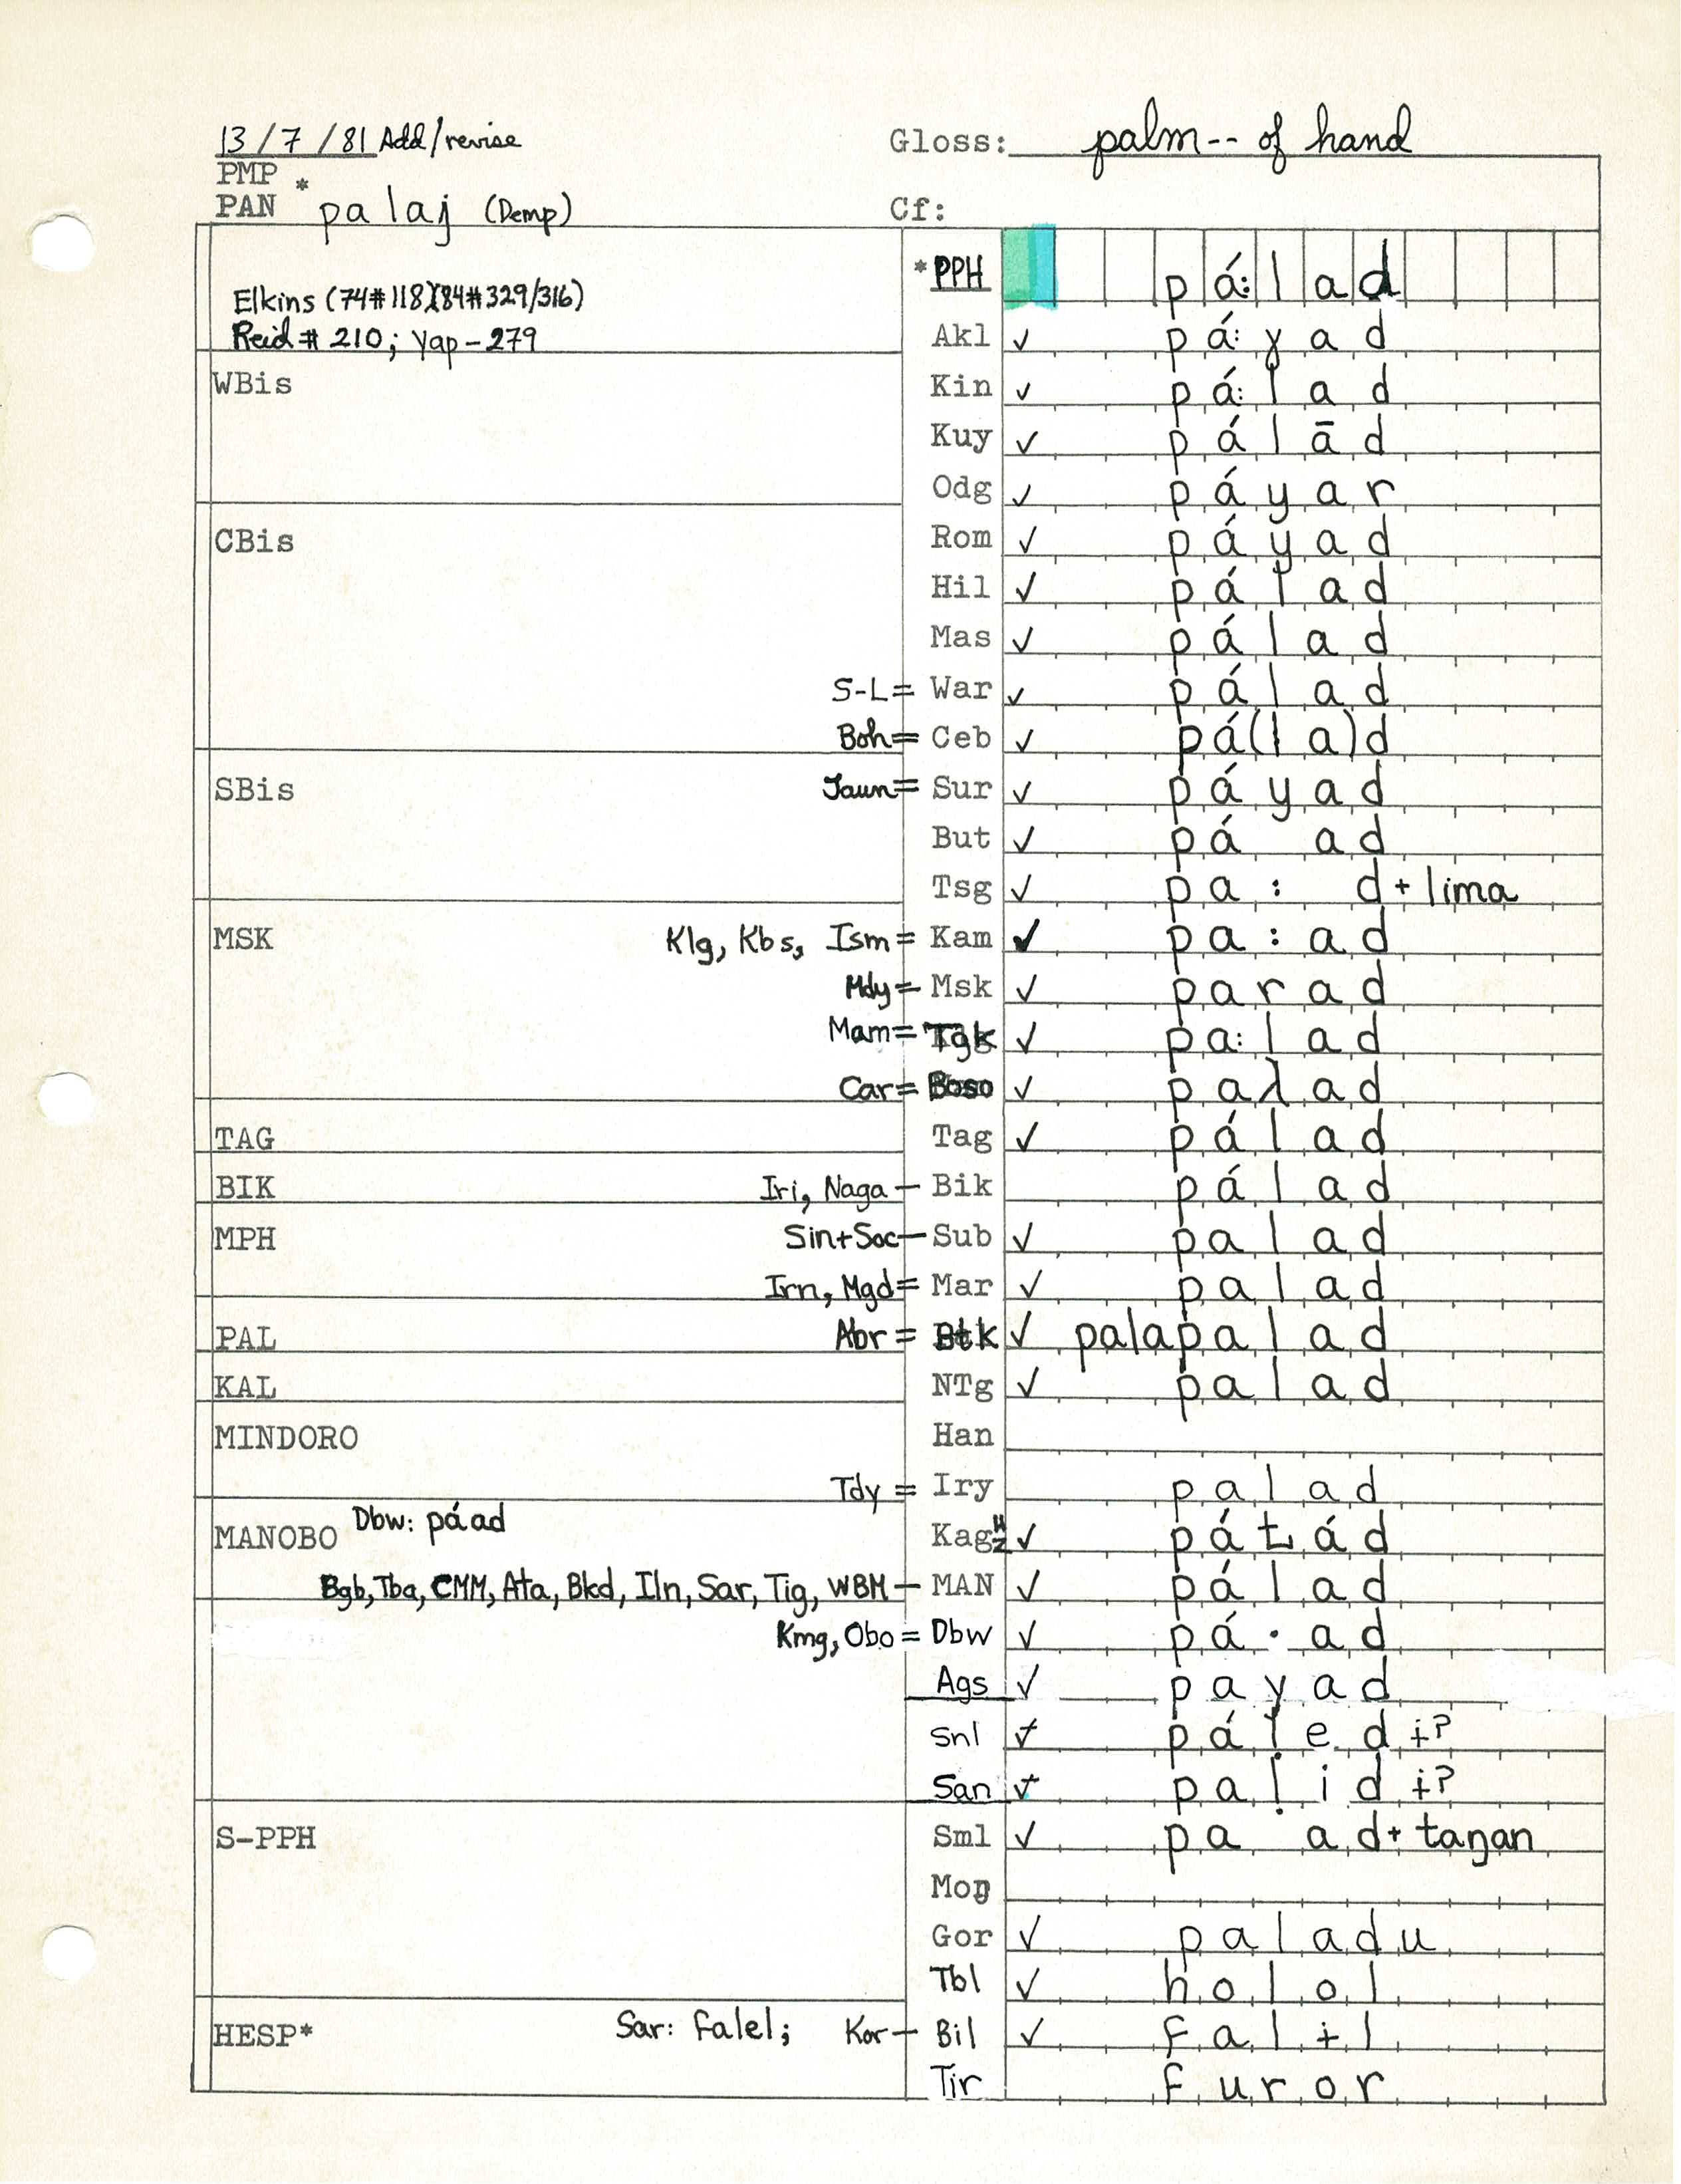 13/7/81 Add/revise Gloss: palm-- of hand
PMP
PAN *palaj (Demp) Cf:
*PPH pá:lad
Elkins (74#118)(84#329/316)
Reid # 210; Yap-279 Akl ✓ pá:ɣad
WBis Kin ✓ pá:lad
Kuy ✓ pálād
Odg ✓ páyar
CBis Rom ✓ páyad
Hil ✓ pálad
Mas ✓ pálad
S-L= War ✓ pálad
Boh= Ceb ✓ pá(la)d
SBis Jaun= Sur ✓ páyad
But ✓ pá ad
Tsg ✓ pa: d+lima
MSK Klg, Kbs, Ism= Kam ✓ pa:ad
Mdy= Msk ✓ parad
Mam= Tgk ✓ pa:lad
Car= Boso ✓ paλad
TAG Tag ✓ pálad
BIK Iri, Naga– Bik pálad
MPH Sin+Soc– Sub ✓ palad
Irn, Mgd= Mar ✓ palad
PAL Abr = Btk ✓ palapalad
KAL NTg ✓ palad
MINDORO Han
Tdy = Iry palad
MANOBO Dbw: páad Kag ✓ páƚád
Bgb, Tba, CMM, Ata, Bkd, Iln, Sar, Tig, WBM– MAN ✓ pálad
Kmg, Obo = Dbw ✓ pá·ad
Ags ✓ payad
Snl páḷed ɨ?
San paḷid ɨ?
S-PPH Sml ✓ pa ad+taŋan
Moŋ
Gor ✓ paladu
Tbl ✓ holol
HESP* Sar: falel; Kor– Bil ✓ falɨl
Tir furor